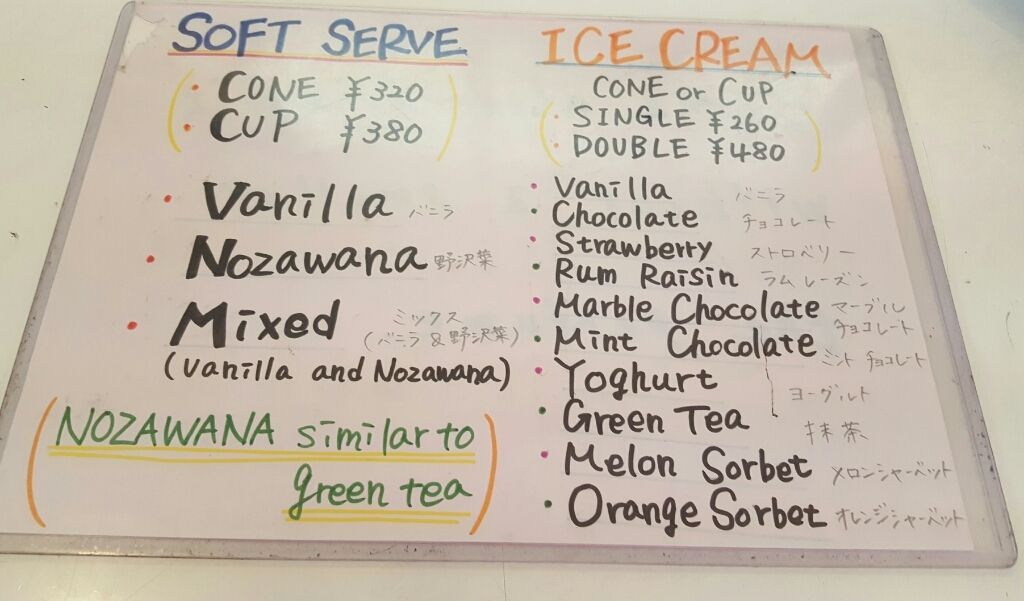 SOFT SERVE
• CONE ¥320
• CUP ¥380
• Vanilla バニラ
• Nozawana 野沢菜
• Mixed ミックス
(バニラ & 野沢菜)
(Vanilla and Nozawana)
(NOZAWANA similar to
green tea)
ICE CREAM
CONE or CUP
• SINGLE ¥260
• DOUBLE ¥480
• Vanilla バニラ
• Chocolate チョコレート
• Strawberry ストロベリー
• Rum Raisin ラムレーズン
• Marble Chocolate マーブル
チョコレート
• Mint Chocolate ミントチョコレート
• Yoghurt ヨーグルト
• Green Tea 抹茶
• Melon Sorbet メロンシャーベット
• Orange Sorbet オレンジシャーベット